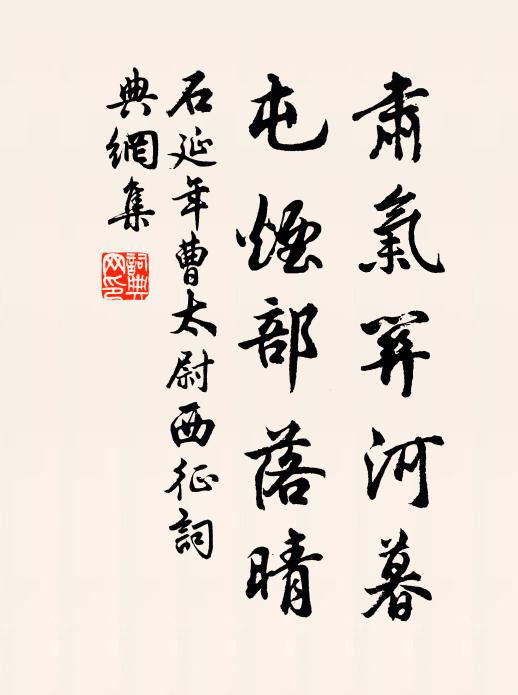 肅氣關河暮
屯煙部落晴
石延年曹太尉西征詞
典網集
詞典網印